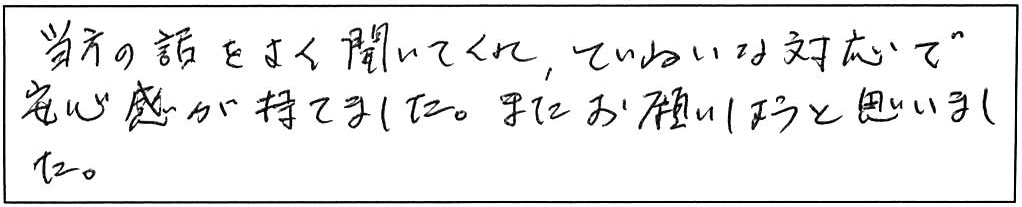 当方の話をよく聞いてくれ,ていねいな対応で
安心感が持てました。またお願いしようと思いまし
た。